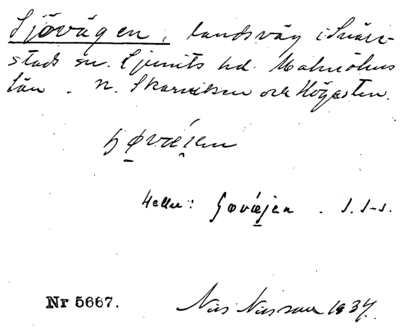 Sjövägen, landsväg i Snår-
stads sn. Ljunits hd. Malmöhus
län. n. Skarviken och Högesten.
ʃøvæjen
Heller: ʃøvæjen. S. S-s.
Nr 5667. Nils Nilsson 1934.